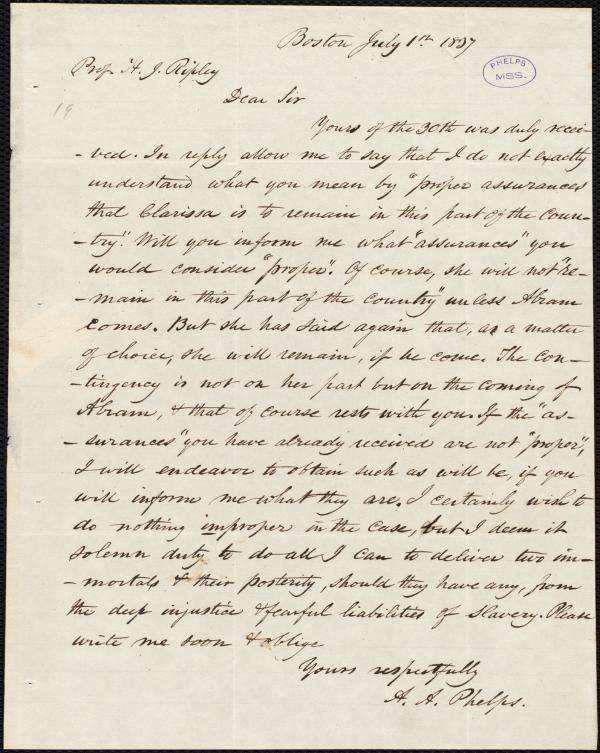 Boston July 1st 1837
Prof H. J. Ripley
PHELPS
MSS.
19
Dear Sir
Yours of the 30th was duly recei-
-ved. In reply allow me to say that I do not exactly
understand what you mean by "proper assurances
that Clarissa is to remain in this part of the coun-
-try". Will you inform me what "assurances" you
would consider "proper". Of course, she will not "re-
-main in this part of the country" unless Abram
comes. But she has said again that, as a matter
of choice, she will remain, if he come. The con-
-tingency is not on her part but on the coming of
Abram, & that of course rests with you. If the "as-
-surances" you have already received are not "proper",
I will endeavor to obtain such as will be, if you
will inform me what they are. I certainly wish to
do nothing improper in the case, but I deem it
solemn duty to do all I can to deliver two im-
-mortals & their posterity, should they have any, from
the deep injustice & fearful liabilities of slavery. Please
write me soon & oblige
Yours respectfully
A. A. Phelps.